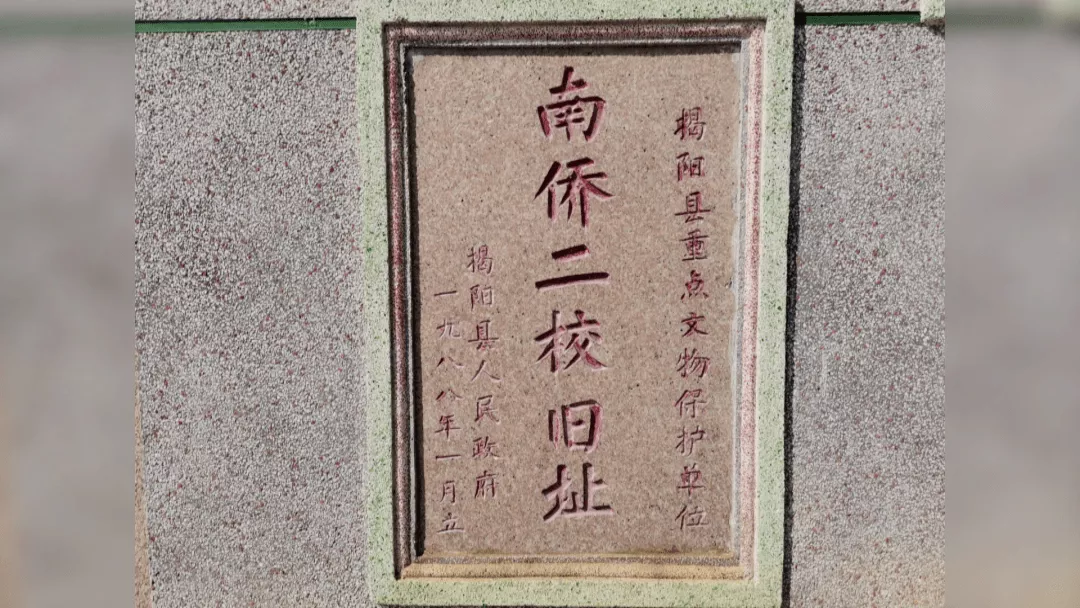 揭阳县重点文物保护单位
南侨二校旧址
揭阳县人民政府
一九八八年一月立